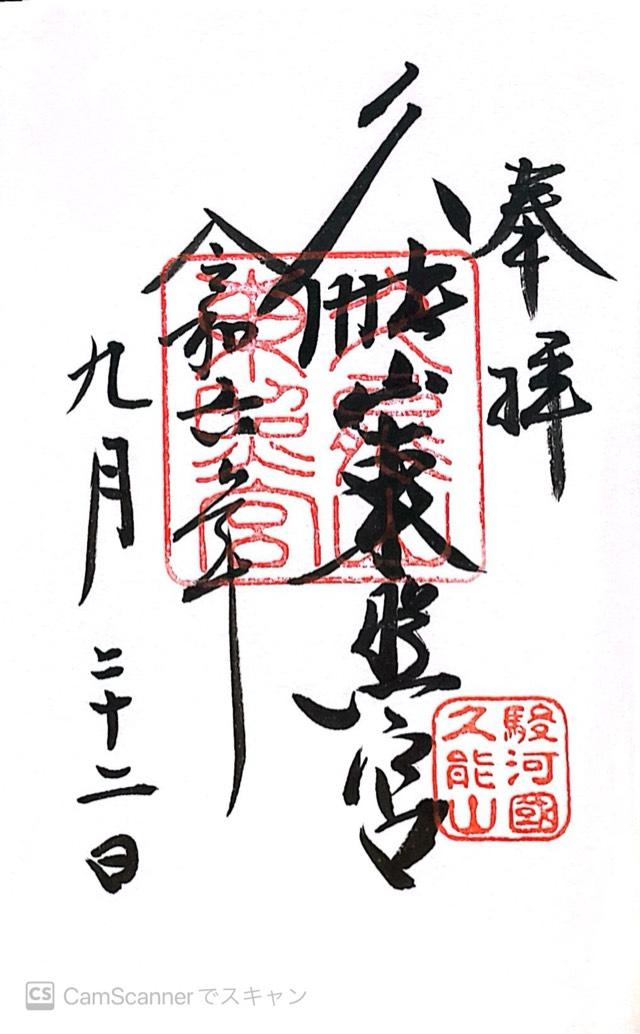 奉拝
久能山東照宮
令和六年
九月二十二日
久能山
東照宮
駿河國
久能山
CS CamScannerでスキャン